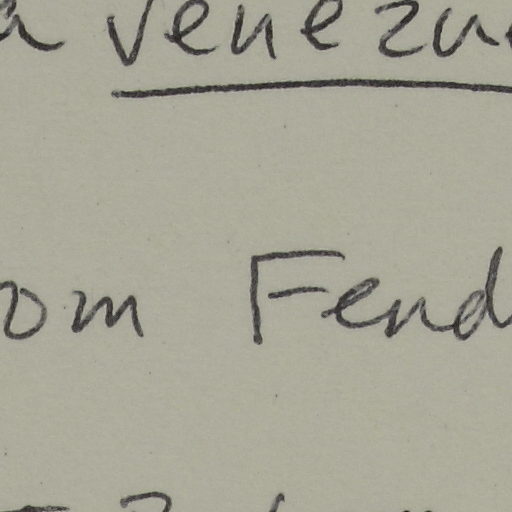 a Venezu
om Fend